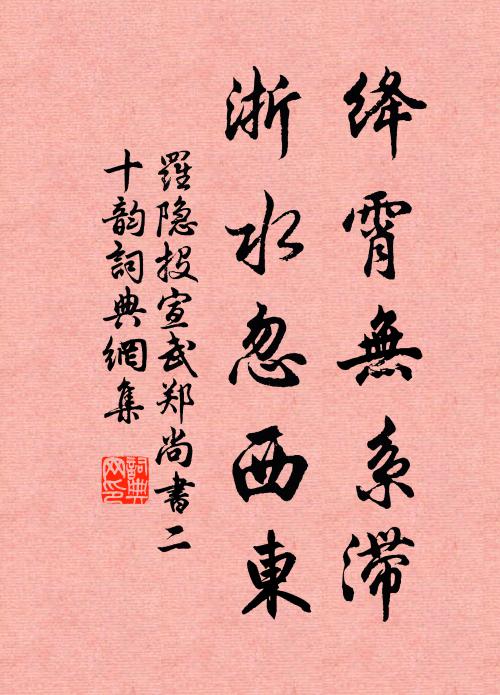 绛霄無系滯
浙水忽西東
羅隐投宣武郑尚書二
十韵詞典網集
詞典网印